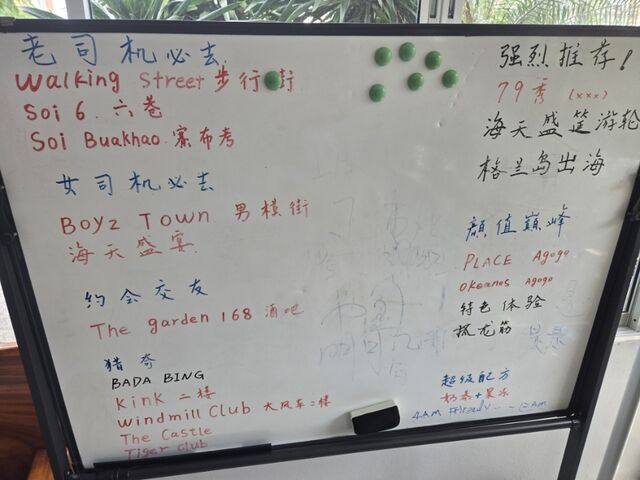 老司机必去
Walking Street 步行街
Soi 6. 六巷
Soi Buakhao. 寨布考
女司机必去
Boyz Town 男模街
海天盛宴
约会交友
The garden 168 酒吧
猎奇
BADA BING
Kink 二楼
Windmill Club 大风车二楼
The Castle
Tiger Club
强烈推荐!
79秀 (xxx)
海天盛筵游轮
格兰岛出海
颜值巅峰
PLACE Agogo
Okeanos Agogo
特色体验
抓龙筋
超级配方
奶茶+果冻
4AM
12AM